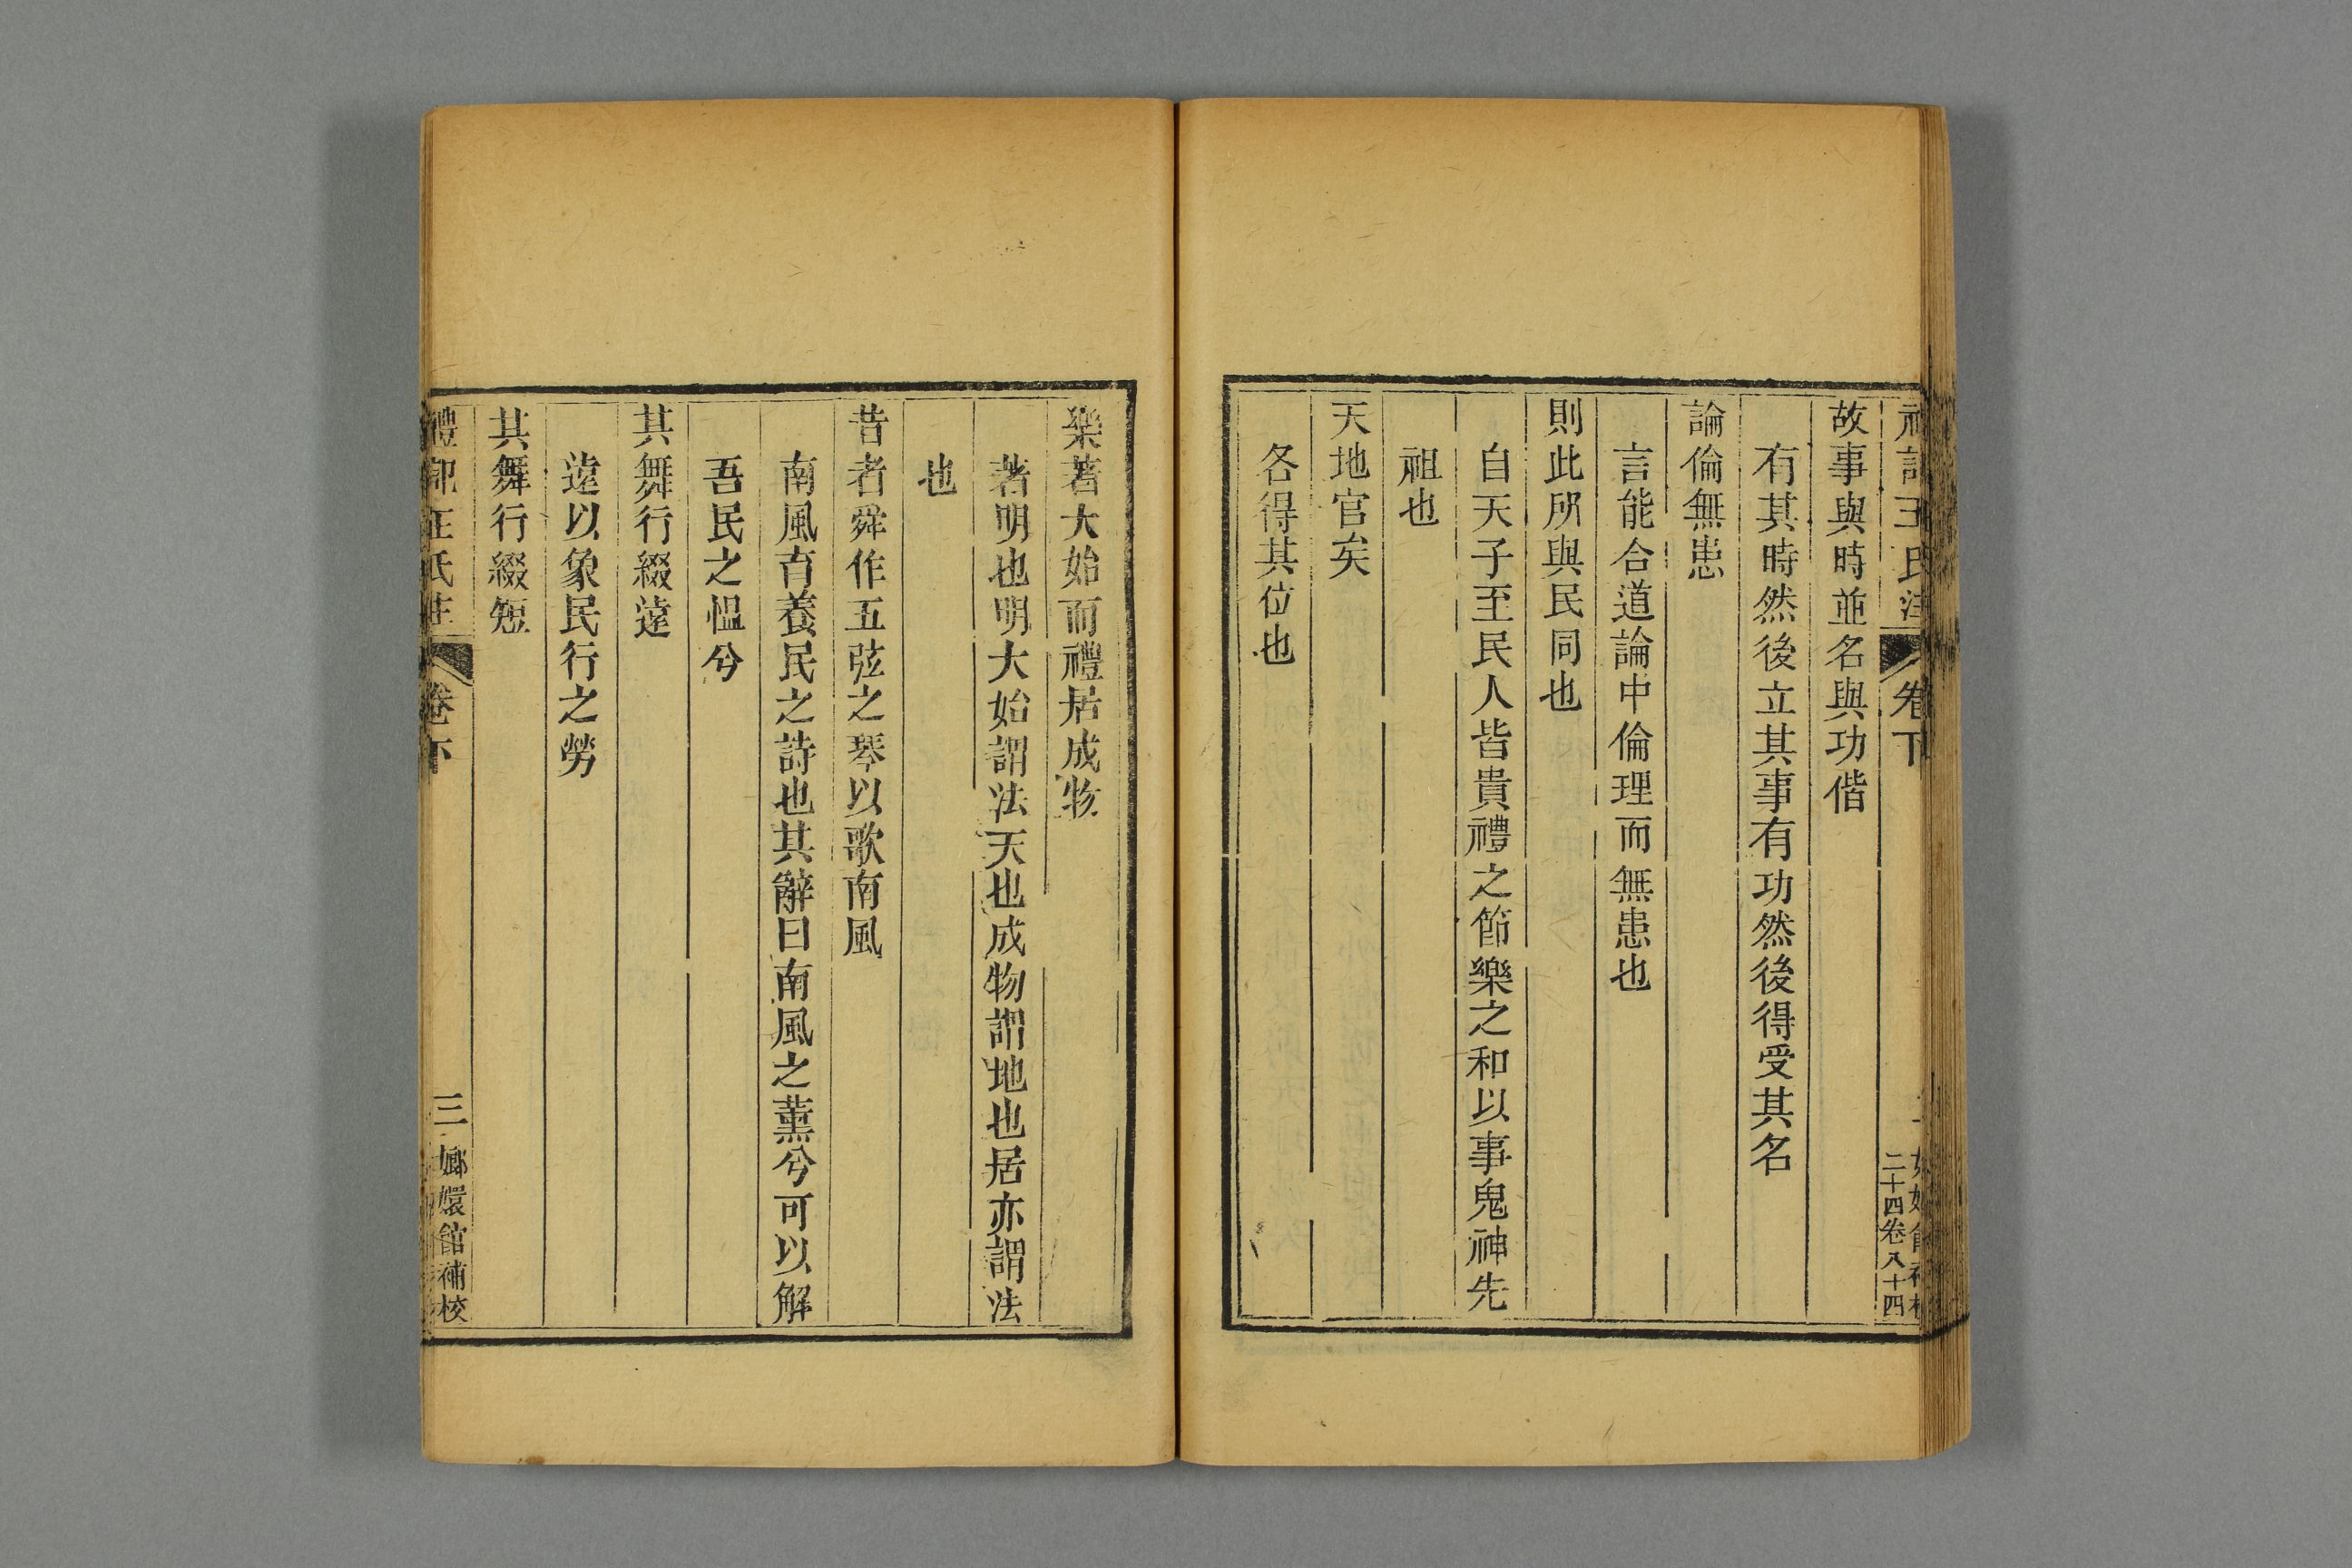 故事與時並名與功偕
有其時然後立其事有功然後得受其名
論倫無患
言能合道論中倫理而無患也
則此所與民同也
自天子至民人皆貴禮之節樂之和以事鬼神先
祖也
天地官矣
各得其位也
卷下
二十四卷八十四
樂著大始而禮居成物
著明也明大始謂法天也成物謂地也居亦謂法
也
昔者舜作五弦之琴以歌南風
南風育養民之詩也其辭曰南風之薰兮可以解
吾民之慍兮
其舞行綴遠
遠以象民行之勞
其舞行綴短
卷下
三
嫏嬛館補校